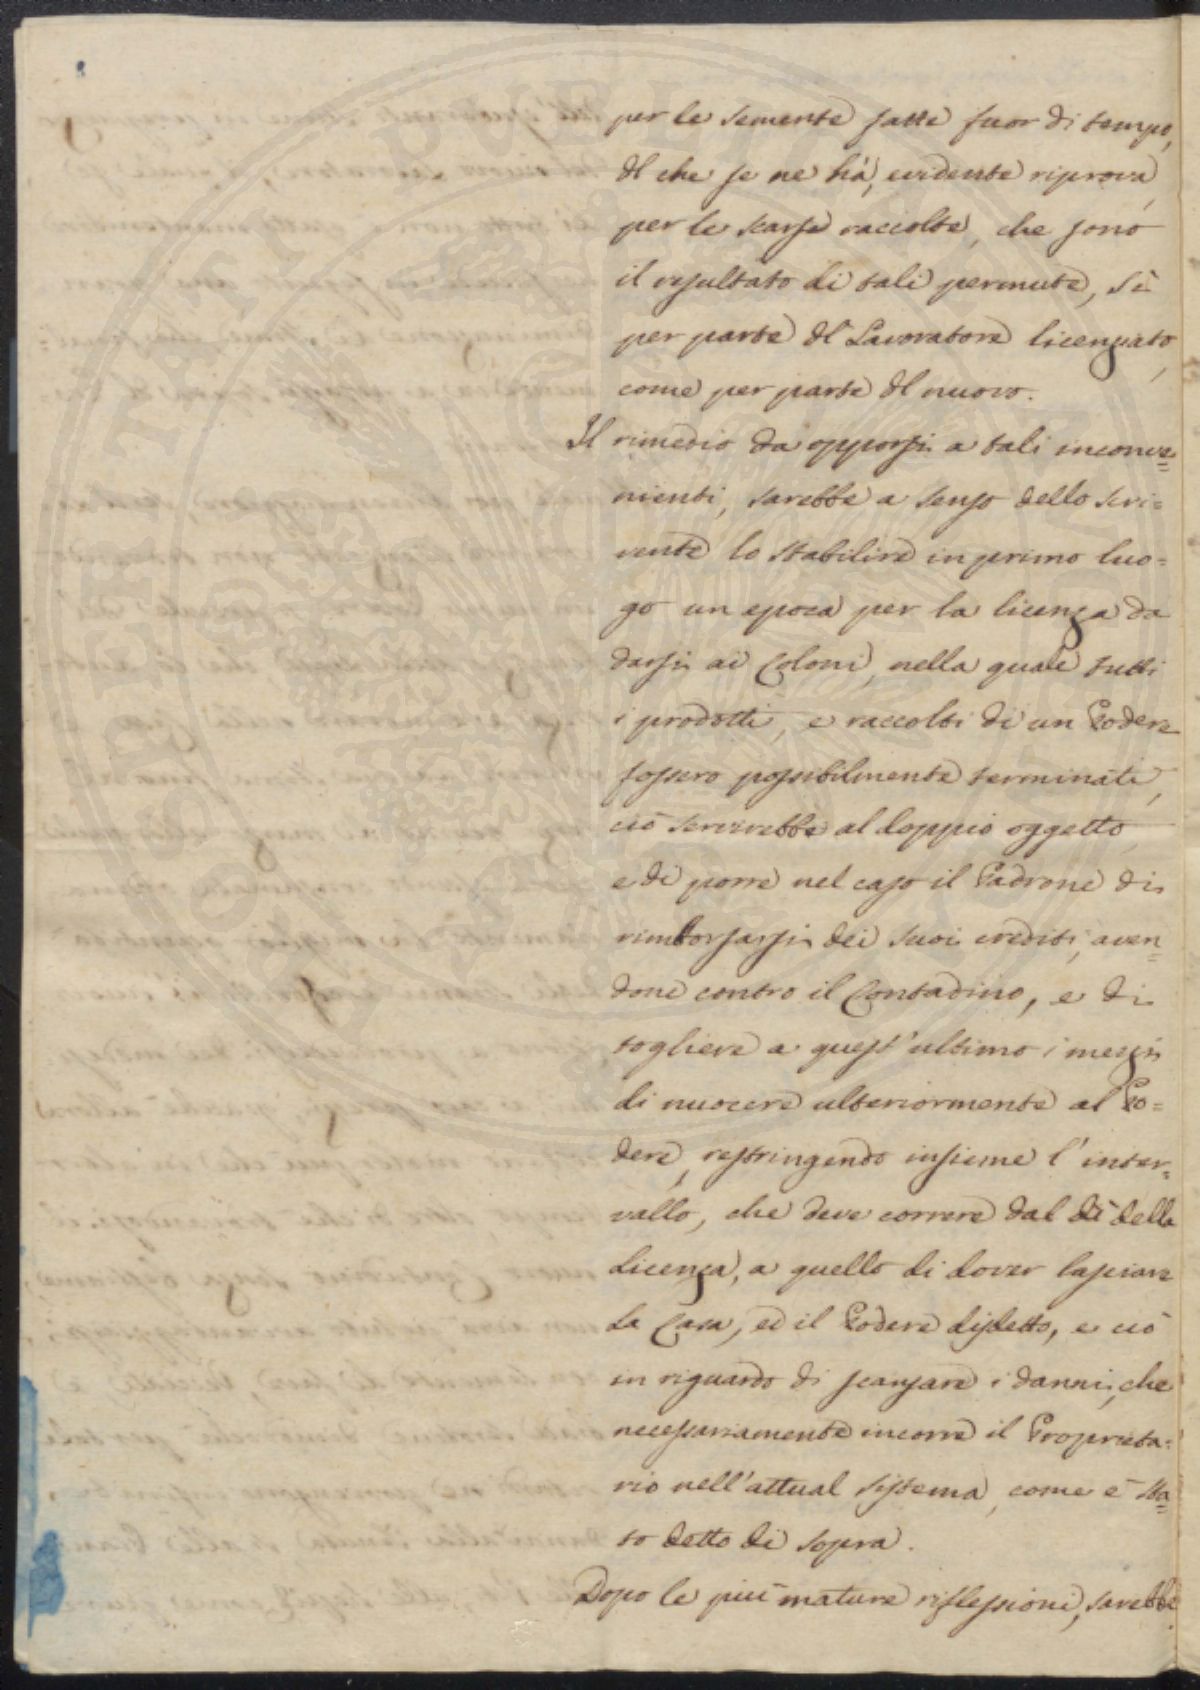 per le semente fatte fuor di tempo,
Dl che se ne há, evidente riprova,
per le scarse raccolte, che sono
il resultato di tali permute, sì
per parte Dl Lavoratore licenziato,
come per parte Dl nuovo.
Il rimedio da opporsi a tali inconve=
nienti, sarebbe a senso dello scri=
vente lo stabilire in primo luo=
go un epoca per la licenza da
darsi ai Coloni, nella quale tutti
i prodotti, e raccolti di un Podere
fossero possibilmente terminati,
ciò servirebbe al doppio oggetto,
e di porre nel caso il Padrone di
rimborsarsi dei suoi crediti, aven=
done contro il Contadino, e di
togliere a quest'ultimo i mezzi
di nuocere ulteriormente al Po=
dere, restringendo insieme l'inter=
vallo, che deve correre dal dì della
Licenza, a quello di dover lasciare
La Casa, ed il Podere disdetto, e ciò
in riguardo di scansare i danni, che
necessariamente incorre il Proprieta=
rio nell'attual sistema, come è sta=
to detto di sopra.
Dopo le più mature riflessioni, sarebbe